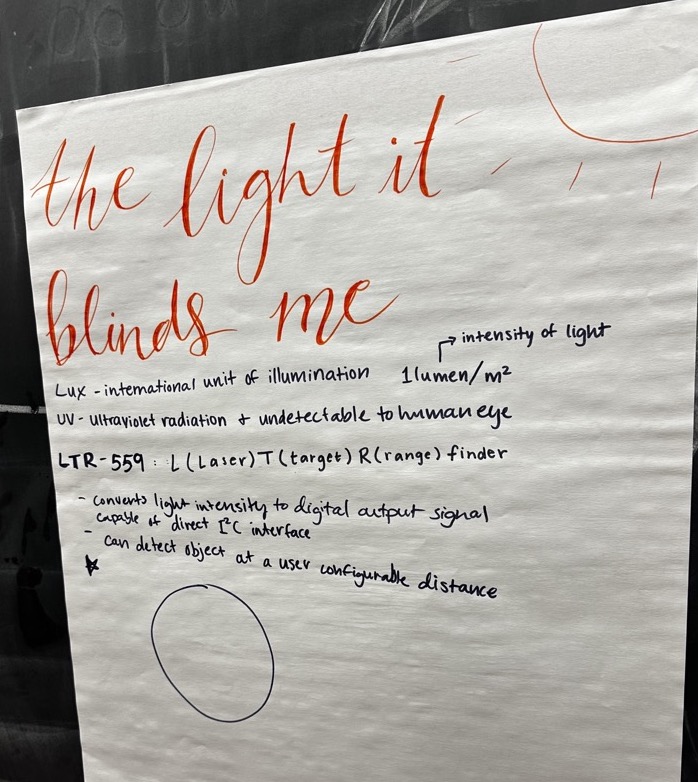 the light it
blinds me
intensity of light
Lux - international unit of illumination 1 lumen/m²
UV - ultraviolet radiation + undetectable to human eye
LTR-559 : L (Laser) T (target) R (range) finder
- converts light intensity to digital output signal
capable of direct I²C interface
- can detect object at a user configurable distance